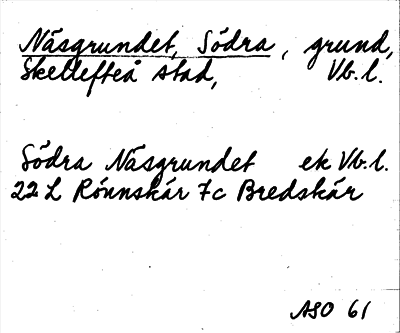 Näsgrundet, Södra, grund,
Skellefteå stad, Vb. l.
Södra Näsgrundet ek Vb. l.
22 L Rönnskär 7c Bredskär
ASO 61